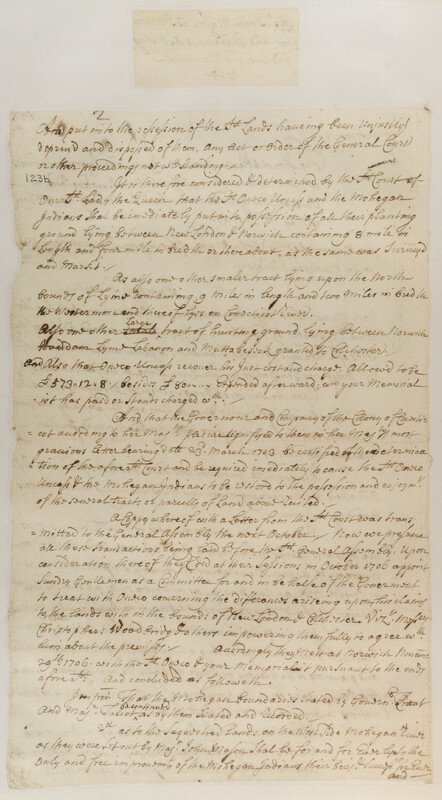 2
And put into the possession of the sd Lands haveing been Unjustly
deprivd and disposesd of them, any Act or Order of the General Court
or other proceedings notwithstanding.
1236
It is there fore considered & determined by the sd Court of
Our sd Lady the Queen that the sd Oneco Uncass and the Mohegan
Indians shal be imediately put into possession of all their planting
ground lying between New London & Norwich containing 8 mile in
Length and four mile in bredth or thereabout, as the same was Survey'd
and Markt.
As also one other smaler tract lying upon the North
bounds of Lyme containing 9 miles in length and two Miles in bredth
the Westermore end thereof lyes on Conecticot River.
Also one other large tract of hunting ground lying between Norwich
Lyme Lebanon and Mattabeseck granted to Colchester.
And Also that Oneco Uncass recover his Just costs and charge Allowed to be
£573=12=8 besides £80 Expended afterward wch your Memorial
ist has paid or stands charged wth.
And that the Governour and Company of the Colony of
cot according to her Majtys pleasure signifyed to them in her Majtys most
gracious letter bearing date 23d March 1703 be certifyed by
tion of the aforesd Court and be required imediately to cause the sd Oneco
Uncass & the Mohegan Indians to be restored to the possession and
of the several tracts or parcells of Land above recited.
A Coppy whereof with a Letter from the sd Court was trans
=mitted to the General Assembly the next October. Now
all these transactions being laid before the sd General Assembly, Upon
consideration thereof they Did at their Sessions in October 1706 appoint
Sundry Gentlemen as a Committee for and in behalfe of the Government
to treat with Oneco concerning the differances ariseing upon his claims
to the Lands with in the bounds of New London & Colchester Vizt
Christophers, Wood and others impowering them fully to agree wth
him about the premises. Accordingly they Met at Norwich
29th 1706 with the sd Oneco & your Memorialist pursuant to the ends
aforesd, And concluded as followeth
That the Mohegan boundaries stated by Governr Treat
And Majr Talcot as by them stated and Recorded.
as to the sequestred Lands on the West side Mohegan River
as they were set out by Majr John Mason shal be for and for Ever lye to the
Only and free improvement of the Mohegan Indians their for Ever
and